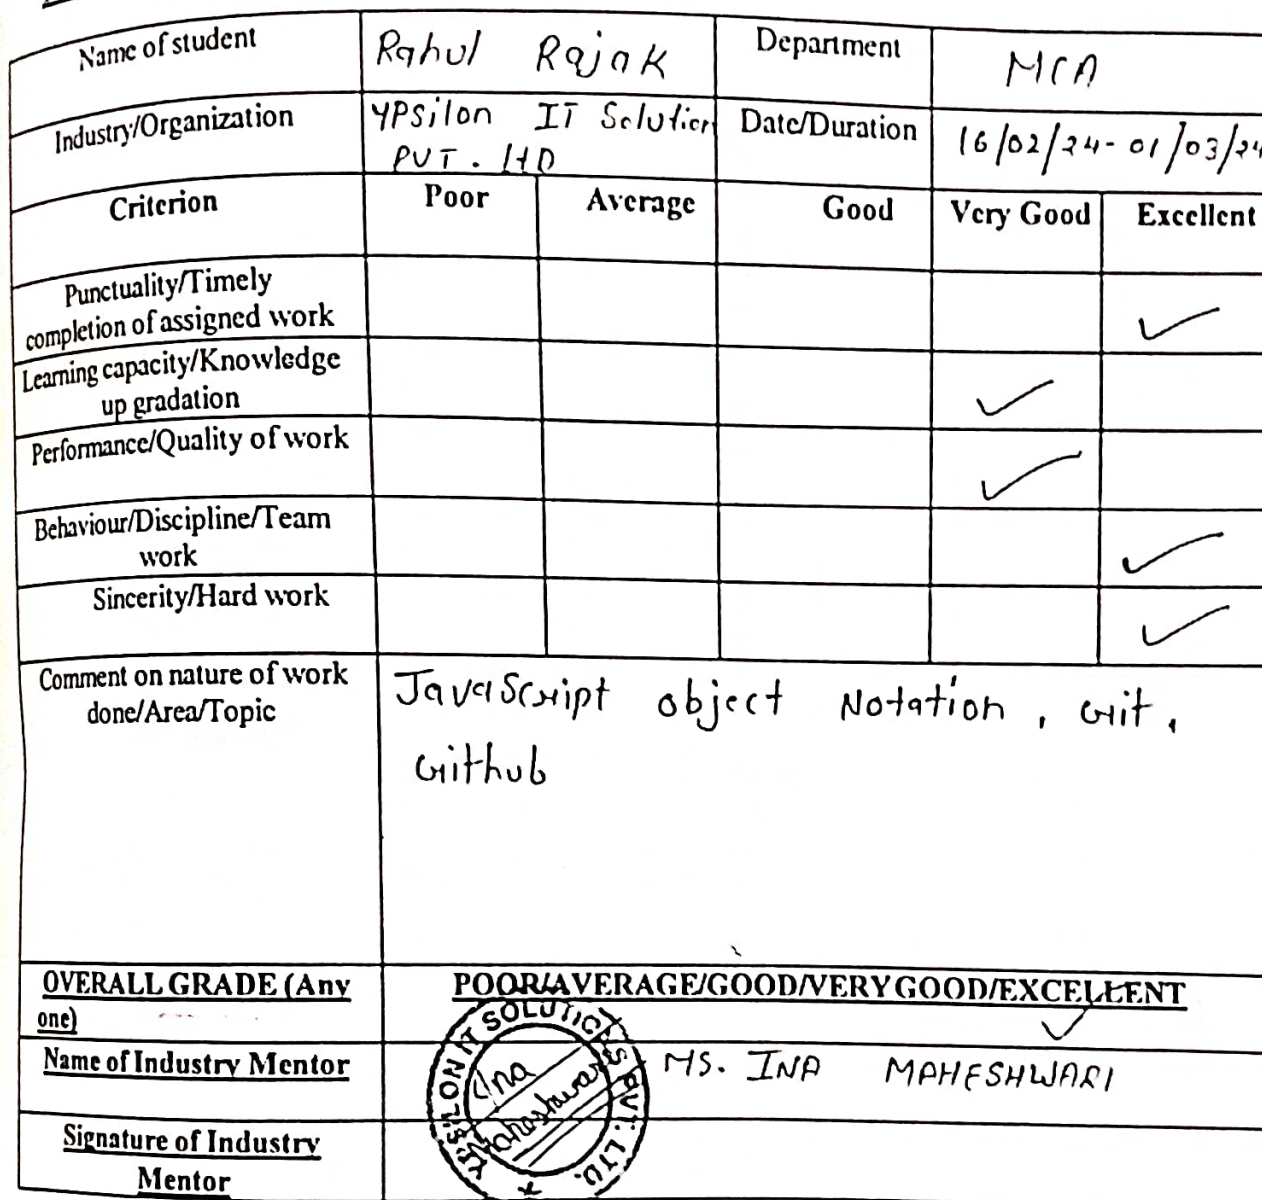 Name of student Rahul Rajak Department MCA
Industry/Organization YPSilon IT Solution Date/Duration 16/02/24-01/03/24
PVT. LTD
Criterion Poor Average Good Very Good Excellent
Punctuality/Timely
completion of assigned work ✓
Learning capacity/Knowledge
up gradation ✓
Performance/Quality of work ✓
Behaviour/Discipline/Team
work ✓
Sincerity/Hard work ✓
Comment on nature of work JavaScript object Notation, Git,
done/Area/Topic
Github
OVERALL GRADE (Any POOR/AVERAGE/GOOD/VERY GOOD/EXCELLENT
one) ✓
Name of Industry Mentor MS. INA MAHESHWARI
Signature of Industry
Mentor
YPSILON IT SOLUTIONS PVT. LTD.
Ina
Maheshwari